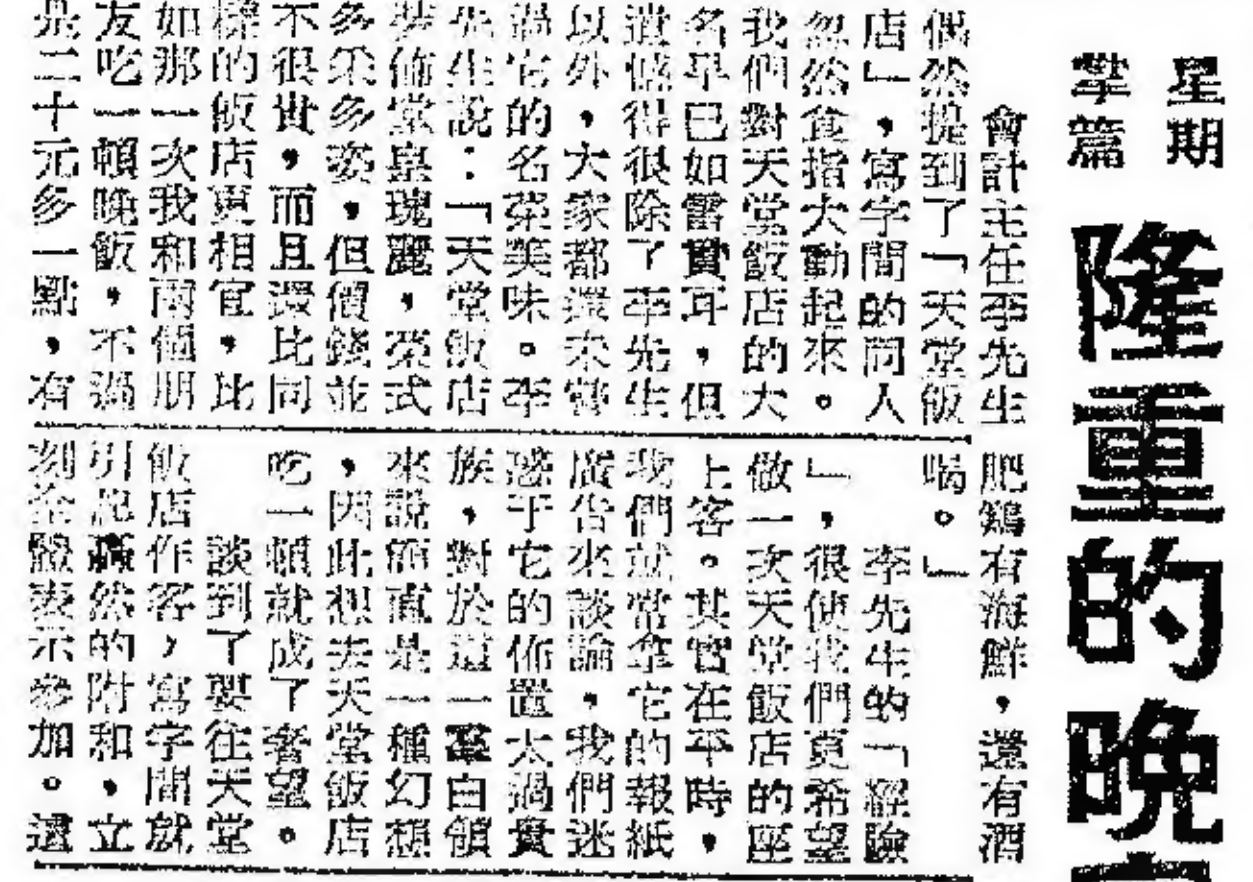 星期
掌篇
隆重的晚
會計主任李先生
偶然提到了「天堂飯
店」,寫字間的同人
忽然食指大動起來。
我們對天堂飯店的大
名早已如雷貫耳,但
遺憾得很除了李先生
以外,大家都還未嘗
過它的名菜美味。李
先生說:「天堂飯店
裝佈堂皇瑰麗,菜式
多采多姿,但價錢並
不很貴,而且還比同
樣的飯店更相宜,比
如那一次我和兩個朋
友吃一頓晚飯,不過
是二十元多一點,有
肥鷄有海鮮,還有酒
喝。」
李先生的「經險
」,很使我們更希望
做一次天堂飯店的座
上客。其實在平時,
我們就常拿它的報紙
廣告來談論,我們迷
惑于它的佈置太過貴
族,對於這一羣白領
來說簡直是一種幻想
,因此想去天堂飯店
吃一頓就成了奢望。
談到了要往天堂
飯店作客,寫字間就
引起轟然的附和,立
刻全體表示參加。這